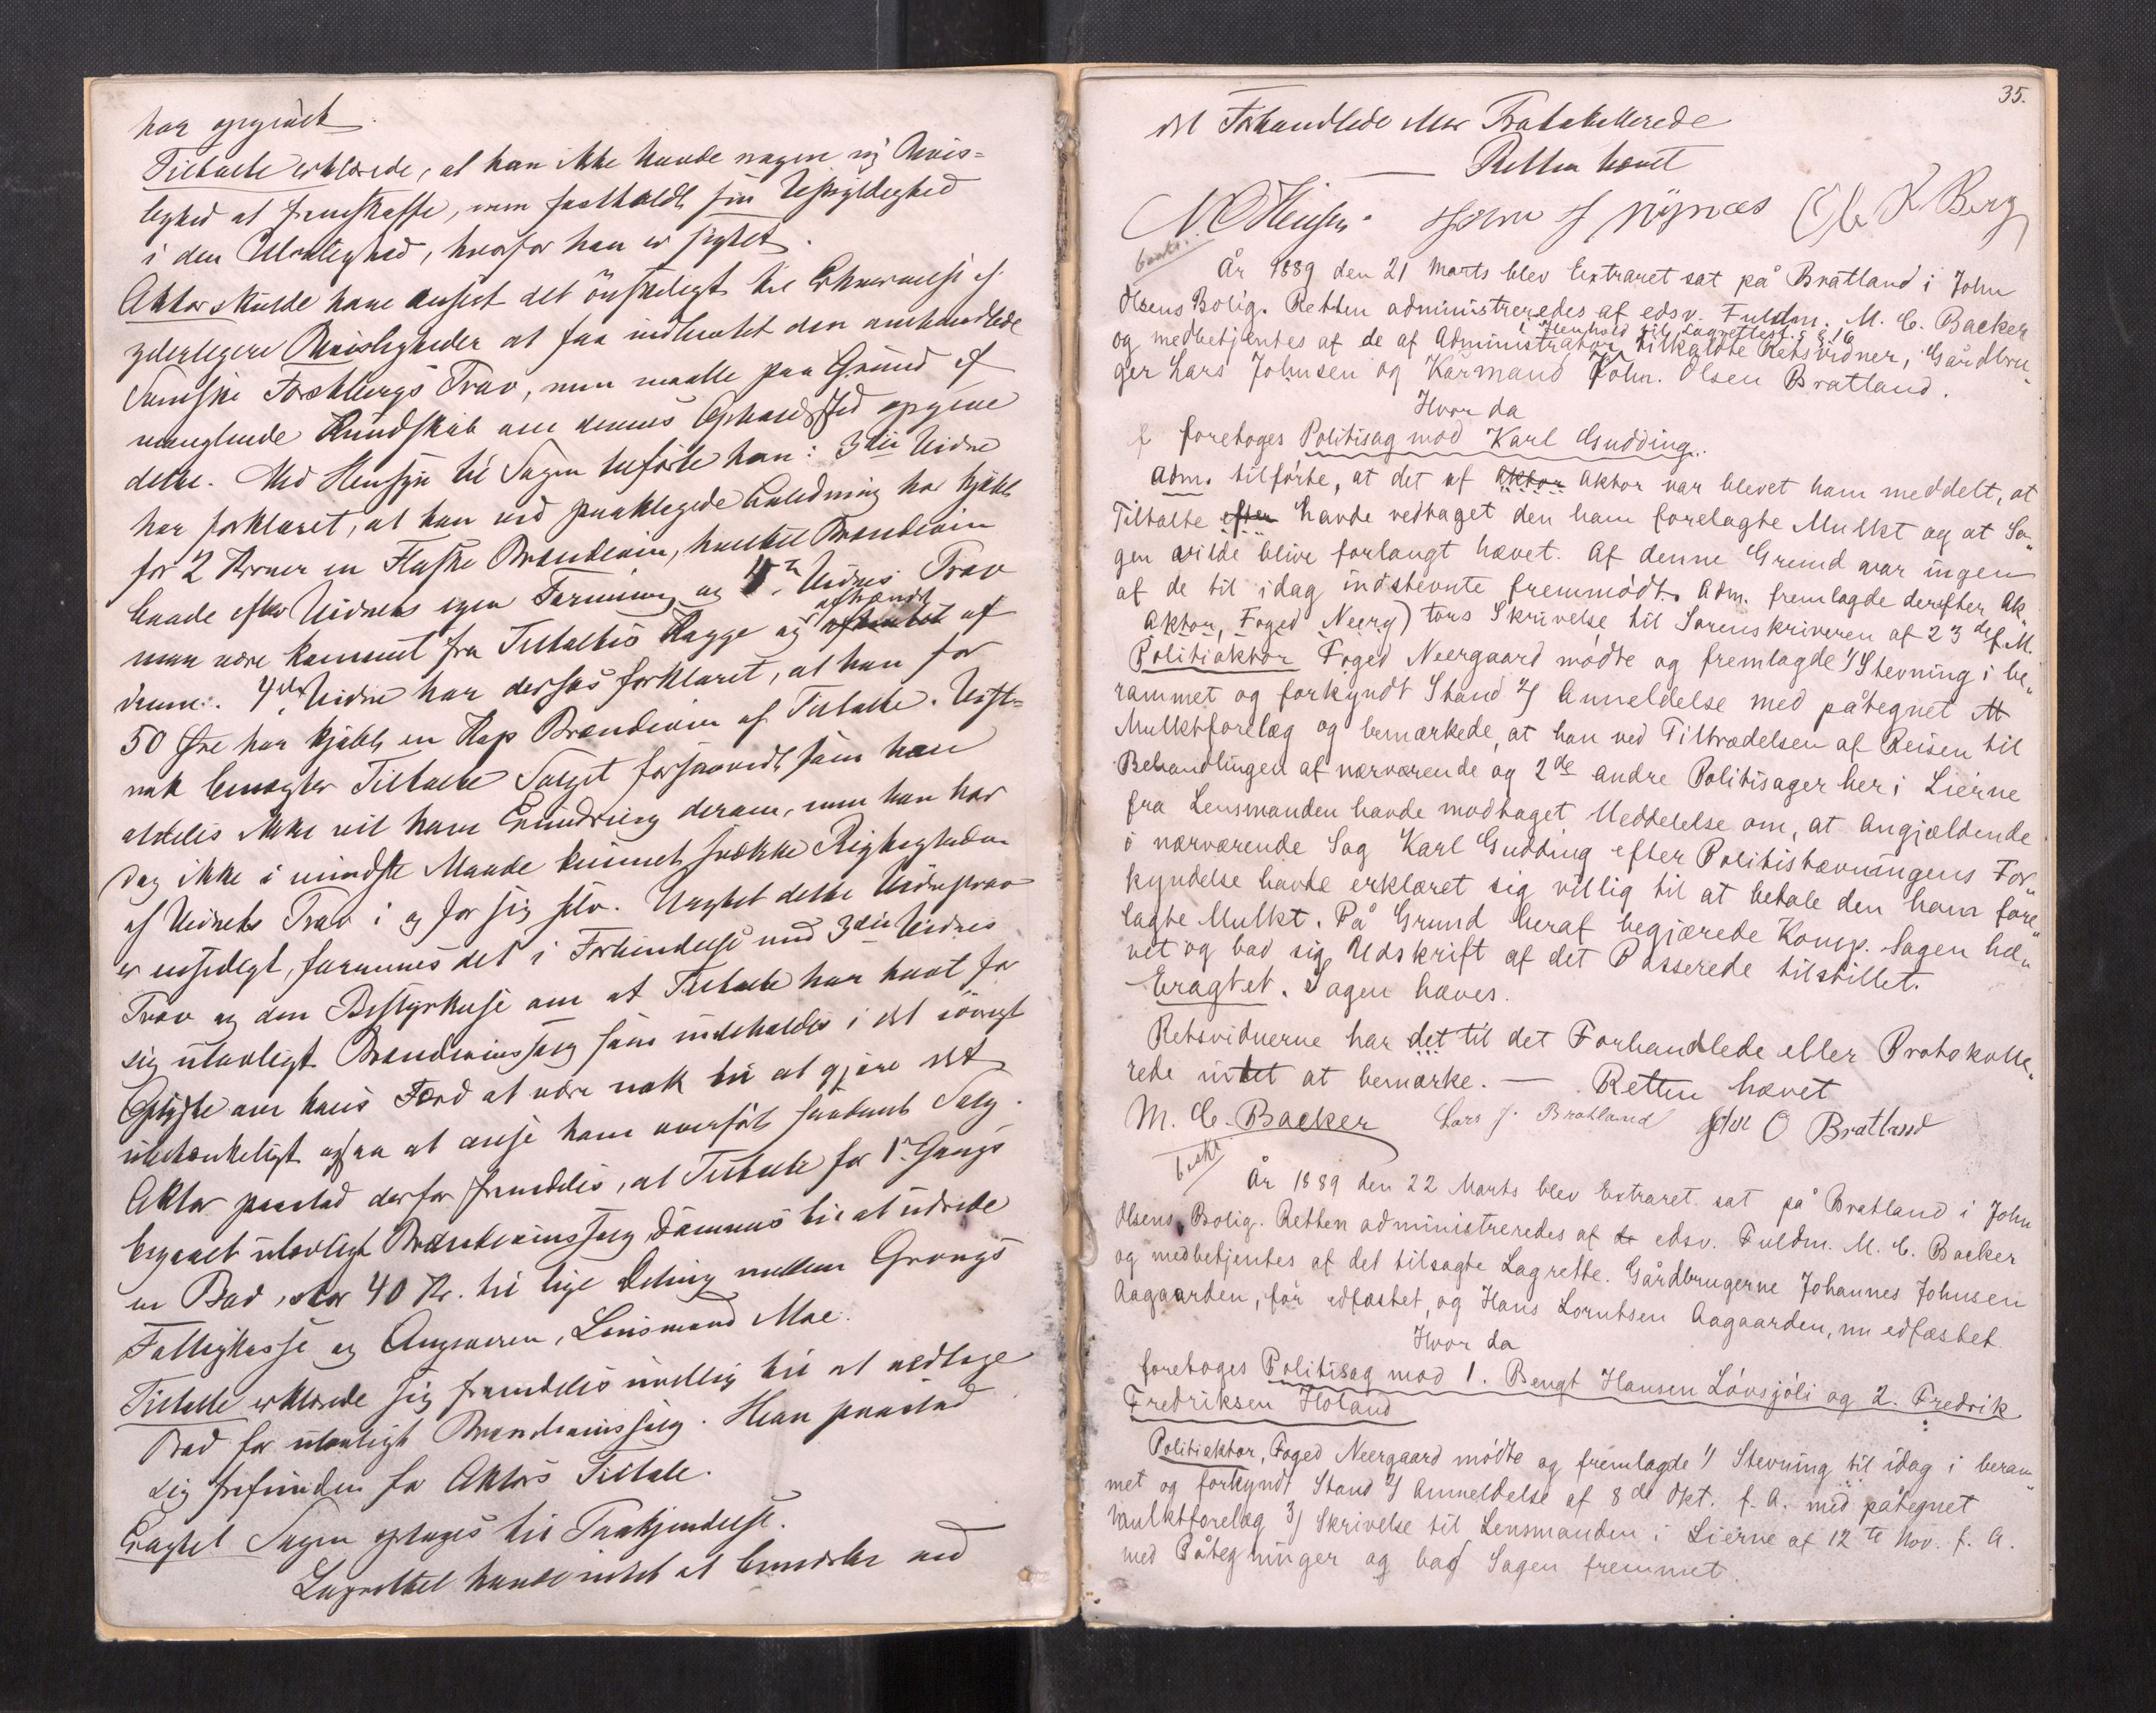 har opgivet.
Tiltalte erklærede, at han ikke havde nogen ny Bevis-
lighed at fremskaffe, men fastholdt sin Uskyldighed
i den Ulovlighed, hvorfor han er sigtet.
Aktor skulde have anseet det ønskeligt til Erhvervelse af
yderligere Bevisligheder at faa indhentet den omhandlede
Svenske Prov, men maatte paa Grund af
manglende Kundskab om dennes Opholdssted opgive
dette. Med Hensyn til Sagen tilførte han: 3die Vidne
har forklaret, at han ved paaklagede Anledning har kjøbt
for 2 Kroner en Flaske Brændevin, hvilket Brændevin
baade efter Vidnets egen Formening og Vidnes Prov
maa være kommet fra Tiltaltes Kagge og afhændt af
denne. 4de Vidne har dersos forklaret, at han for
50 Øre har kjøbt en Kop Brændevin af Tiltalte. Vist-
nok benægter Tiltalte Salget forsaavidt som han
aldeles ikke vil have Erindring derom, men han har
dog ikke i mindste Maade kunnet svække Rigtigheden
af Vidnets Prov i og for sig selv. Uagtet dette Vidneprov
er ensidigt, formenes det i Forbindelse med 3die Vidnes
Prov og den Bestyrkelse om at Tiltalte har havt for
sig ulovligt Brændevinssalg som indeholdes i det iøvrigt
Oplyste om hans Færd at være nok til at gjøre det
ubetænkeligt ogsaa at anse ham overført saadant Salg.
Aktor paastod derfor fremdeles, at Tiltalte for 1ste Gangs
begaaet ulovligt Brændevinssalg dømmes til at udrede
en Bod, stor 40 Kr. til lige Deling mellem Grongs
Fattigkasse og Angiveren, Lensmand Moe.
Tiltalte erklærede sig fremdeles uvillig til at vedtage
Bod for ulovligt Brændevinssalg. Han paastod
sig frifunden for Aktors Tiltale.
Eragtet Sagen optages til Paakjendelse.
Lagrettet havde intet at bemærke ved
35.
det Forhandlede eller Protokollerede
Retten hævet
Ole K Berg
År 1889 den 21 Marts blev Extraret sat på Bratland i John
Olsens Bolig. Retten administreredes af edsv. Fuldm. M. C. Backer
i Henhold til Lagrettesl.s § 16
og medbetjentes af de af Administrator tilkaldte Retsvidner, Gårdbru„
ger Lars Johnsen og Kårmand John. Olsen Bratland.
Hvor da
foretoges Politisag mod Karl Gudding.
Adm. tilførte, at det af Aktor Aktor var blevet ham meddelt, at
Tiltalte efter havde vedtaget den ham forelagte Mulkt og at Sa„
gen vilde blive forlangt hævet. Af denne Grund var ingen
af de til idag indstevnte fremmødt. Adm. fremlagde derefter Ak„
Aktor, Foged Neerg) tors Skrivelse til Sorenskriveren af 23de f. M.
Politiaktor Foged Neergaard mødte og fremlagde 1/ Stevning i be„
rammet og forkyndt Stand 2/ Anmeldelse med påtegnet M
Mulktforelæg og bemærkede, at han ved Tiltrædelsen af Reisen til
Behandlingen af nærværende og 2de andre Politisager her i Lierne
fra Lensmanden havde modtaget Meddelelse om, at Angjældende
i nærværende Sag Karl Gudding efter Politistævningens For„
kyndelse havde erklæret sig villig til at betale den ham fore„
lagte Mulkt. På Grund heraf begjærede Komp. Sagen hæ„
vet og bad sig Udskrift af det Passerede tilstillet.
Eragtet. Sagen hæves.
Retsvidnerne har det til det Forhandlede eller Protokolle„
rede intet at bemærke. — Retten hævet
M. C. Backer Lars J. Bratland John O Bratland
År 1889 den 22 Marts blev Extraret sat på Bratland i John
Olsens Bolig. Retten administreredes af de edsv. Fuldm. M. C. Backer
og medbetjentes af det tilsagte Lagrette. Gårdbrugerne Johannes Johnsen
Aagaarden, før edfæstet, og Hans Lorntsen Aagaarden, nu edfæstet.
Hvor da
foretoges Politisag mod 1. Bengt Hansen Løvsjøli og 2. Fredrik
Fredriksen Holand
Politiaktor, Foged Neergaard mødte og fremlagde 1/ Stevning til idag i beram„
met og forkyndt Stand 2/ Anmeldelse af 8de Okt. f. A. med påtegnet
Mulktforelæg 3/ Skrivelse til Lensmanden i Lierne af 12te Nov. f. A.
med Påtegninger og bad Sagen fremmet.